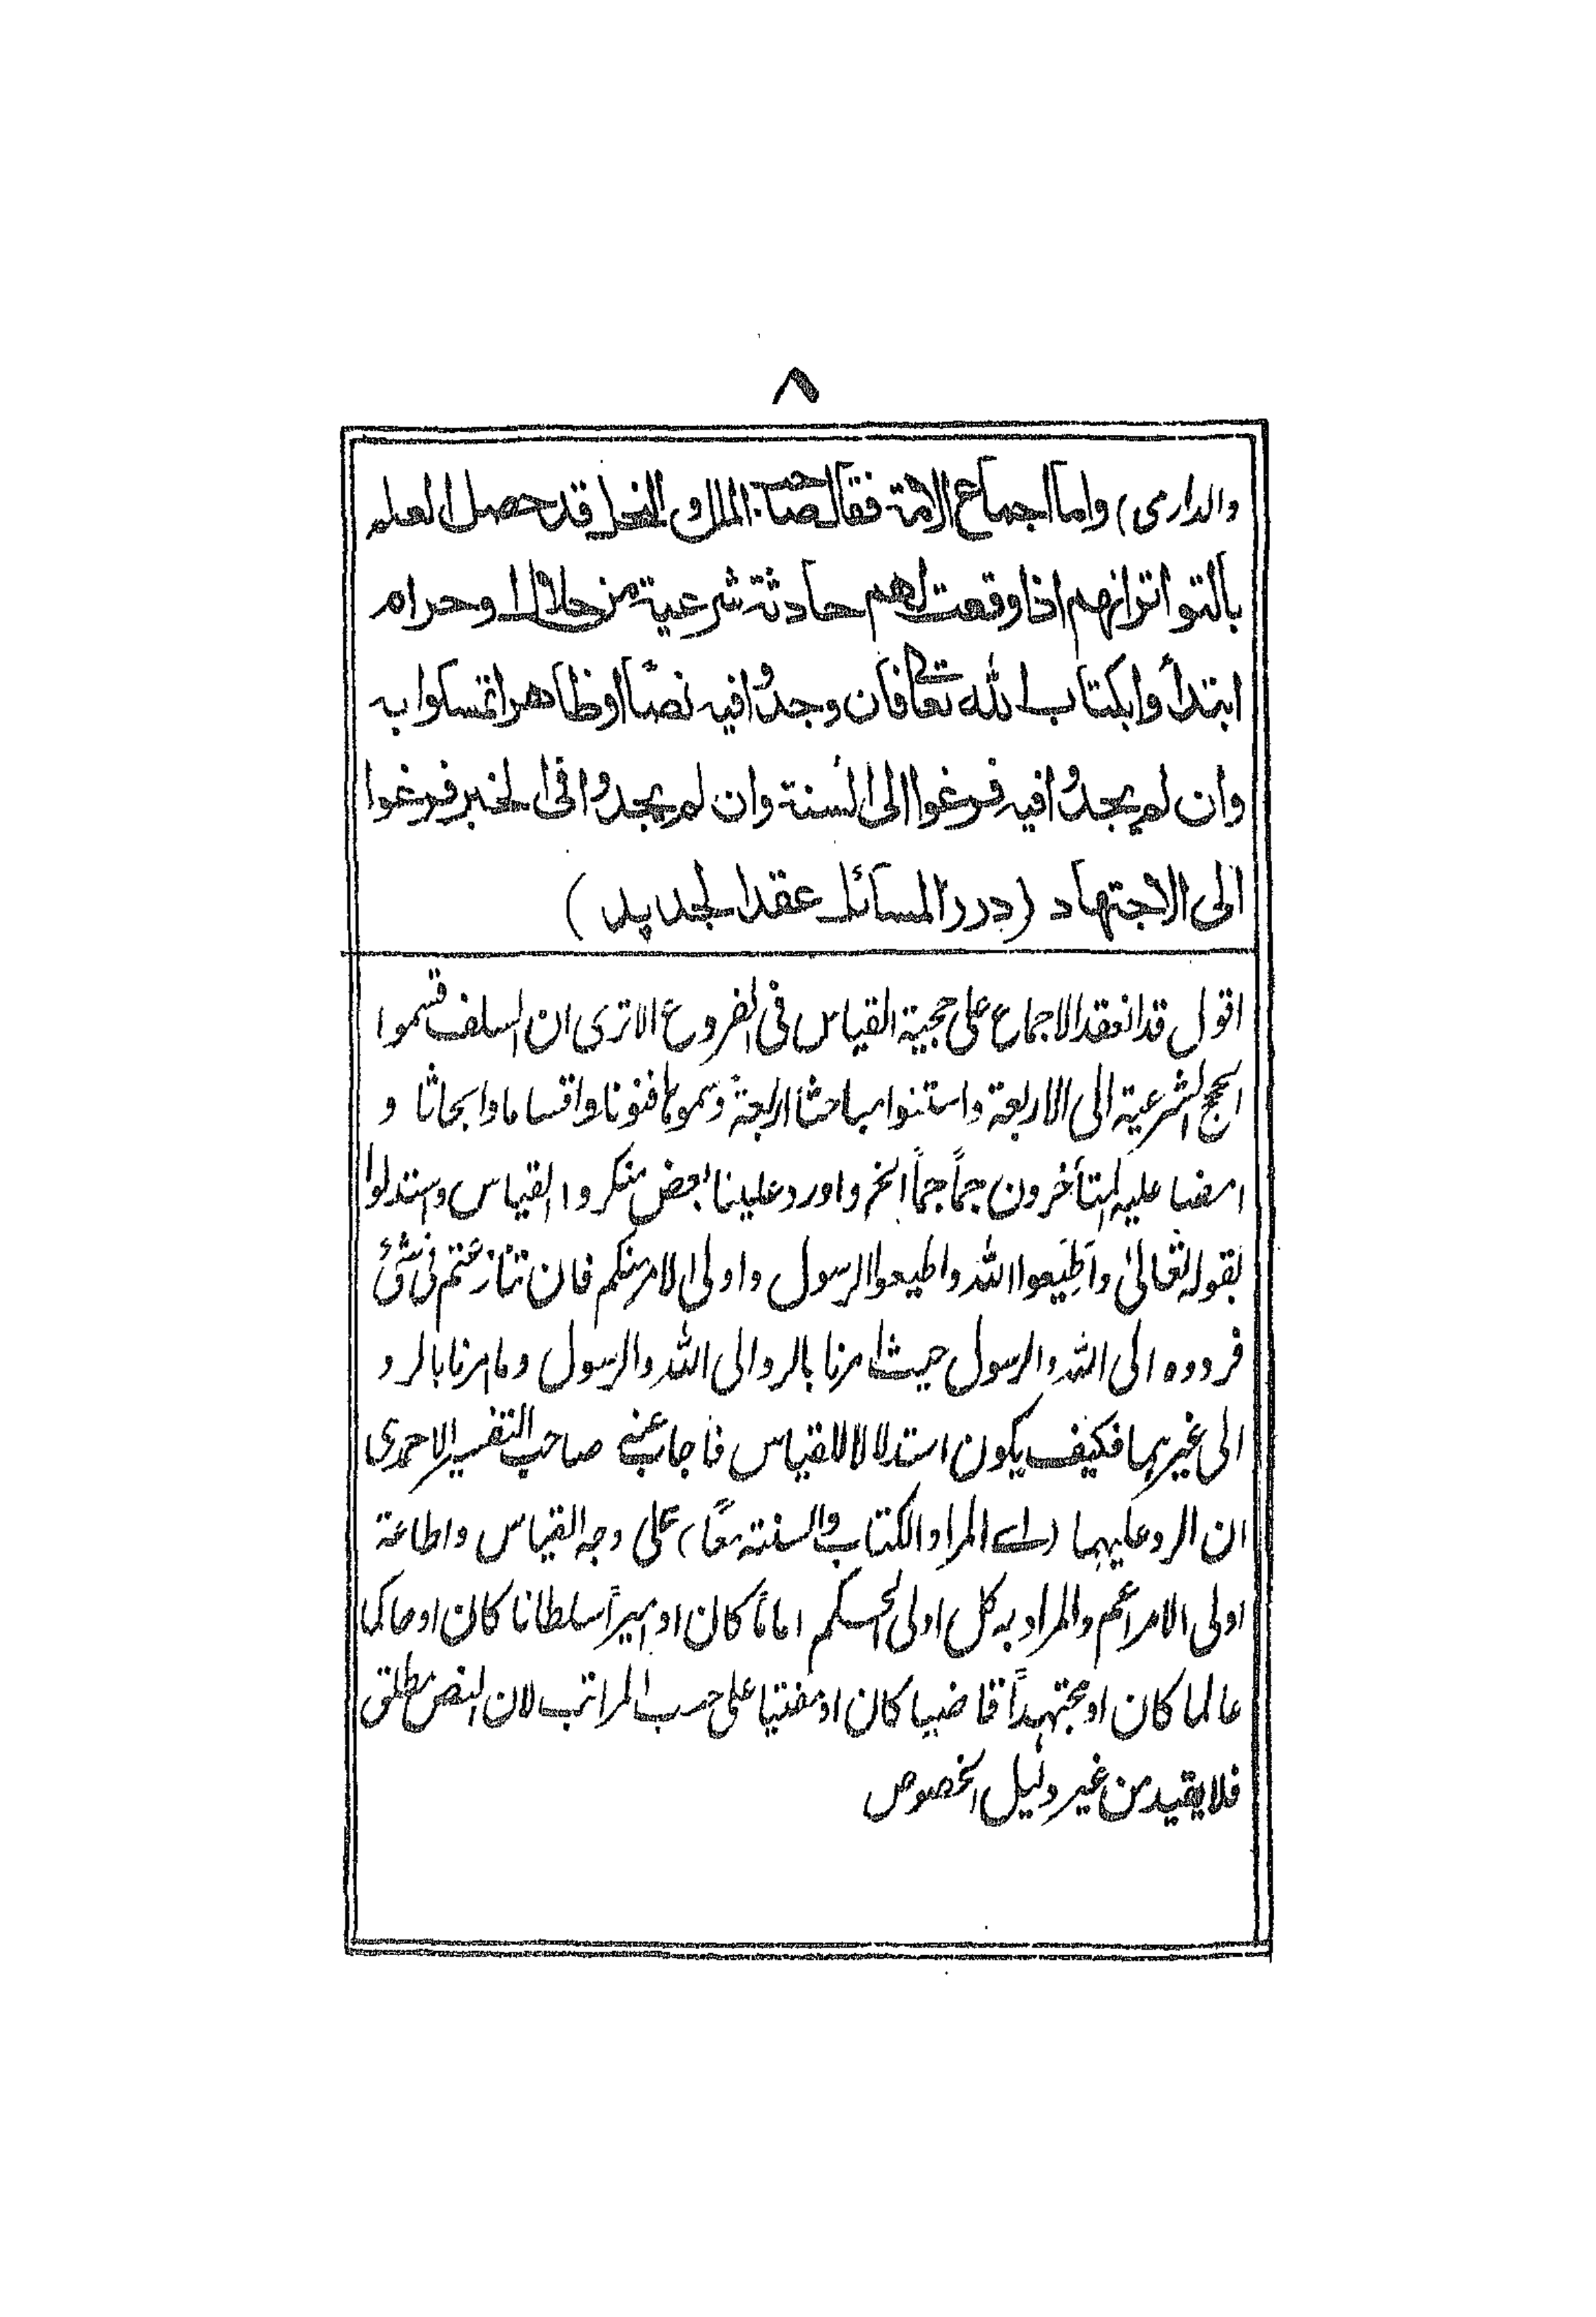 ٨
والدارى) واما اجماع الامة فقال صاحب الملل والنحل قد حصل العلم
بالتواتر انهم اذا وقعت لهم حادثة شرعية من حلال وحرام
ابتدأوا بكتاب الله تعالى فان وجدوا فيه نصًّا او ظاهرا تمسكوا به
وان لم يجدوا فيه فرغوا الى السنة وان لم يجدوا فى الخبر فرغوا
الى الاجتهاد (درر المسائل عقد الجديد)
اقول قد انعقد الاجماع على حجية القياس فى الفروع الا ترى ان السلف قسموا
الحجج الشرعية الى الاربعة واستنوا مباحثا اربعة وسموها فنونا واقسا ما وابحاثا و
امضا عليه المتأخرون جماً جماً الخ واورد علينا بعض منكروا القياس واستدلوا
بقوله تعالىٰ واَطِيعوا الله واطيعوا الرسول واولى الامر منكم فان تنازعتم فى شئ
فردوه الى الله والرسول حيث امرنا بالرد الى الله والرسول وما امرنا بالرد
الى غيرهما فكيف يكون استدلالا للقياس فاجاب عنه صاحب التفسير الاحمدى
ان الرد عليهما (اے المراد الكتاب والسنة معًا) على وجه القياس واطاعة
اولى الامر اعم والمراد به كل اولى الحكم اماماً كان او اميراً سلطانا كان او حاكما
عالما كان او مجتهداً قاضيا كان او مفتيا على حسب المراتب لان النص مطلق
فلا يقيد من غير دليل الخصوص